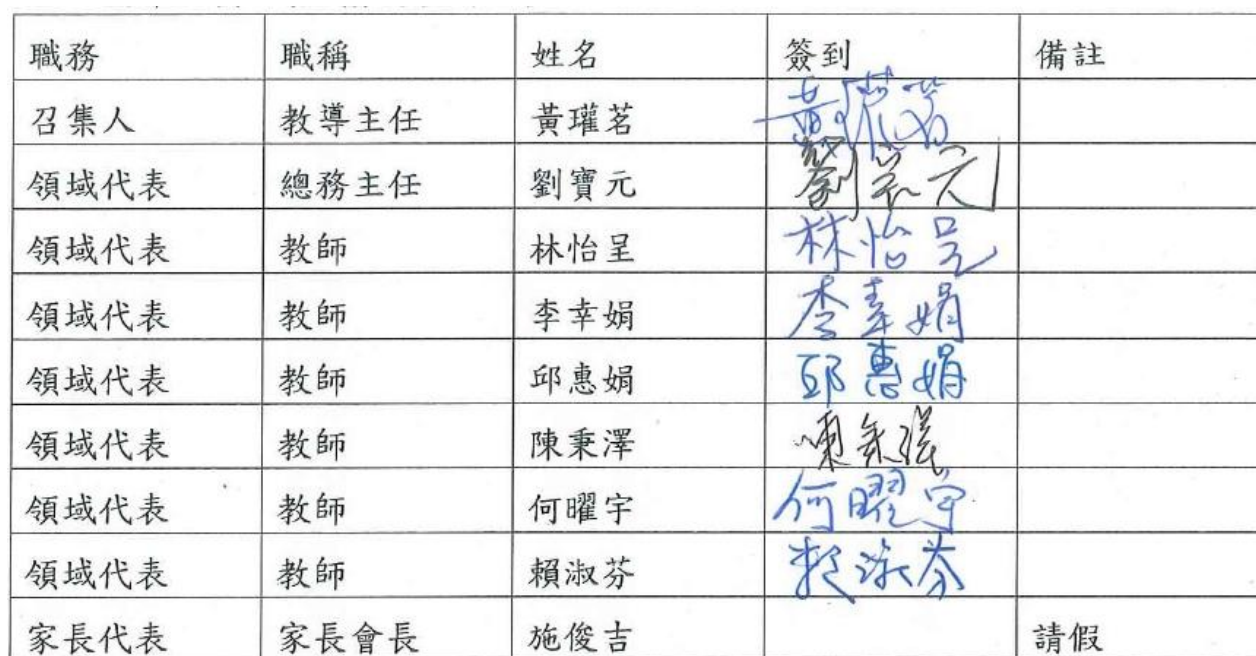 職務 職稱 姓名 簽到 備註
召集人 教導主任 黃瓘茗 黃瓘茗
領域代表 總務主任 劉寶元 劉寶元
領域代表 教師 林怡呈 林怡呈
領域代表 教師 李幸娟 李幸娟
領域代表 教師 邱惠娟 邱惠娟
領域代表 教師 陳秉澤 陳秉澤
領域代表 教師 何曜宇 何曜宇
領域代表 教師 賴淑芬 賴淑芬
家長代表 家長會長 施俊吉 請假